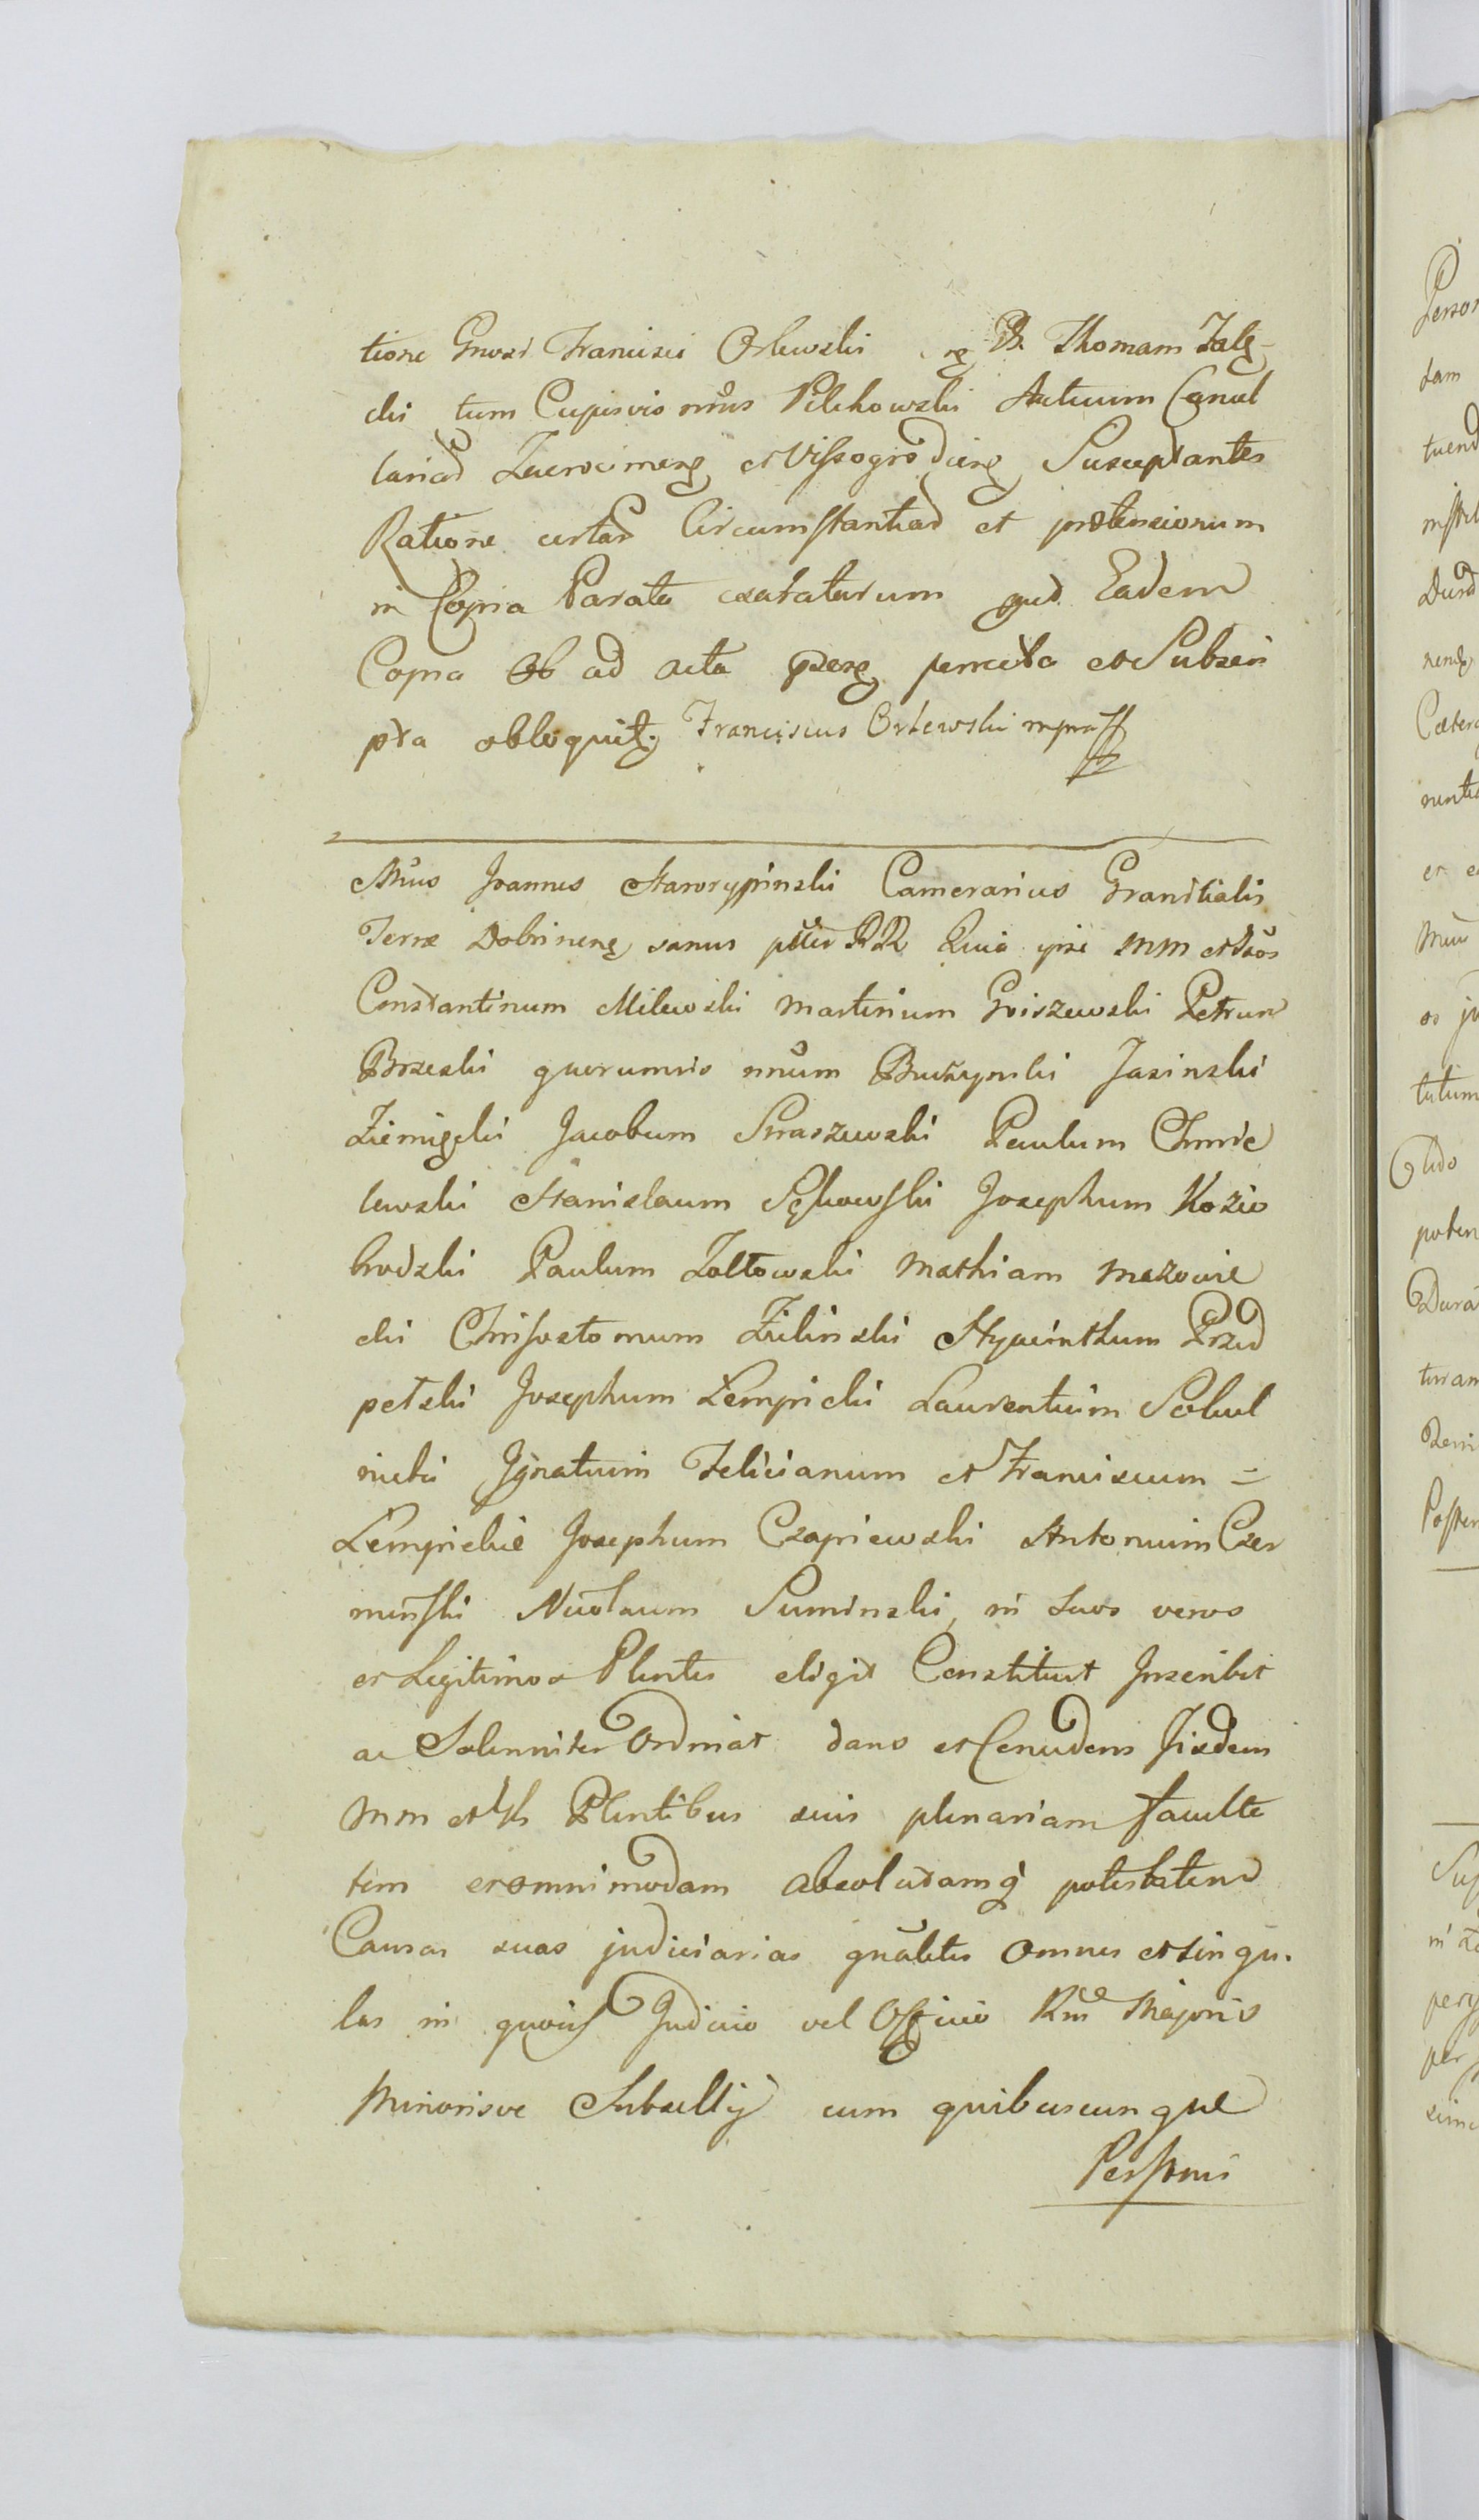 tione Gnosi Francisci Orlewski ɾg Dr Thomam Zalę-
cki tum Cujusvis mus Pilchowski Actuum Cancel
lariad Zacrocimeng et Vissogrodieng Susceptantes
Ratione certar Circumstantiad et prætensiorum
in Copia Parata exarataturum qud Eadem
Copia Ob ad acta pzeng permitta et Subscri
pta obloquitg Franciscus Orlewski mpra
Mus Joannes Starorypinski Camerarius Granitialis
Terræ Dobrineng sanus ptter RR Quia ipse MM et Dros
Constantinum Milewski Martinum Goiszewski Petrum
Brzeski quorumvis unum Buczynski Jasinski
Ziemięcki Jacobum Straszewski Paulum Chmie
lewski Stanislaum Sękowski Josephum Kozie
brodzki Paulum Zołtowski Mathiam Mazowie
cki Chrisostomum Zielinski Hyacinthum Przed
petski Josephum Łempicki Laurentium Sokol
nicki Ignatium Felicianum et Franciscum =
Łempickie Josephum Czapiewski Antonium Czer
minski Nicolaum Suminski, in suos veros
et Legitimos Plentes eligit Constituit Inscribit
ac Solenniter Ordinat dans et Concedens Iisdem
MM et Plentibus suis plenariam faculta
tem et omnimodam absolutamq potestatem
Causas suas judiciarias gnaliter omnes et singu.
las in quovis Judicio vel Officio Rni Majoris
Minorisve Subsellij cum quibuscunque
Personis
Person
dam
tuend
instit
Durad
neng
Cætera
nentia
et e
Mus
os ju
tutum
lido
poten
Dura
turam
Remi
Poster
in
per